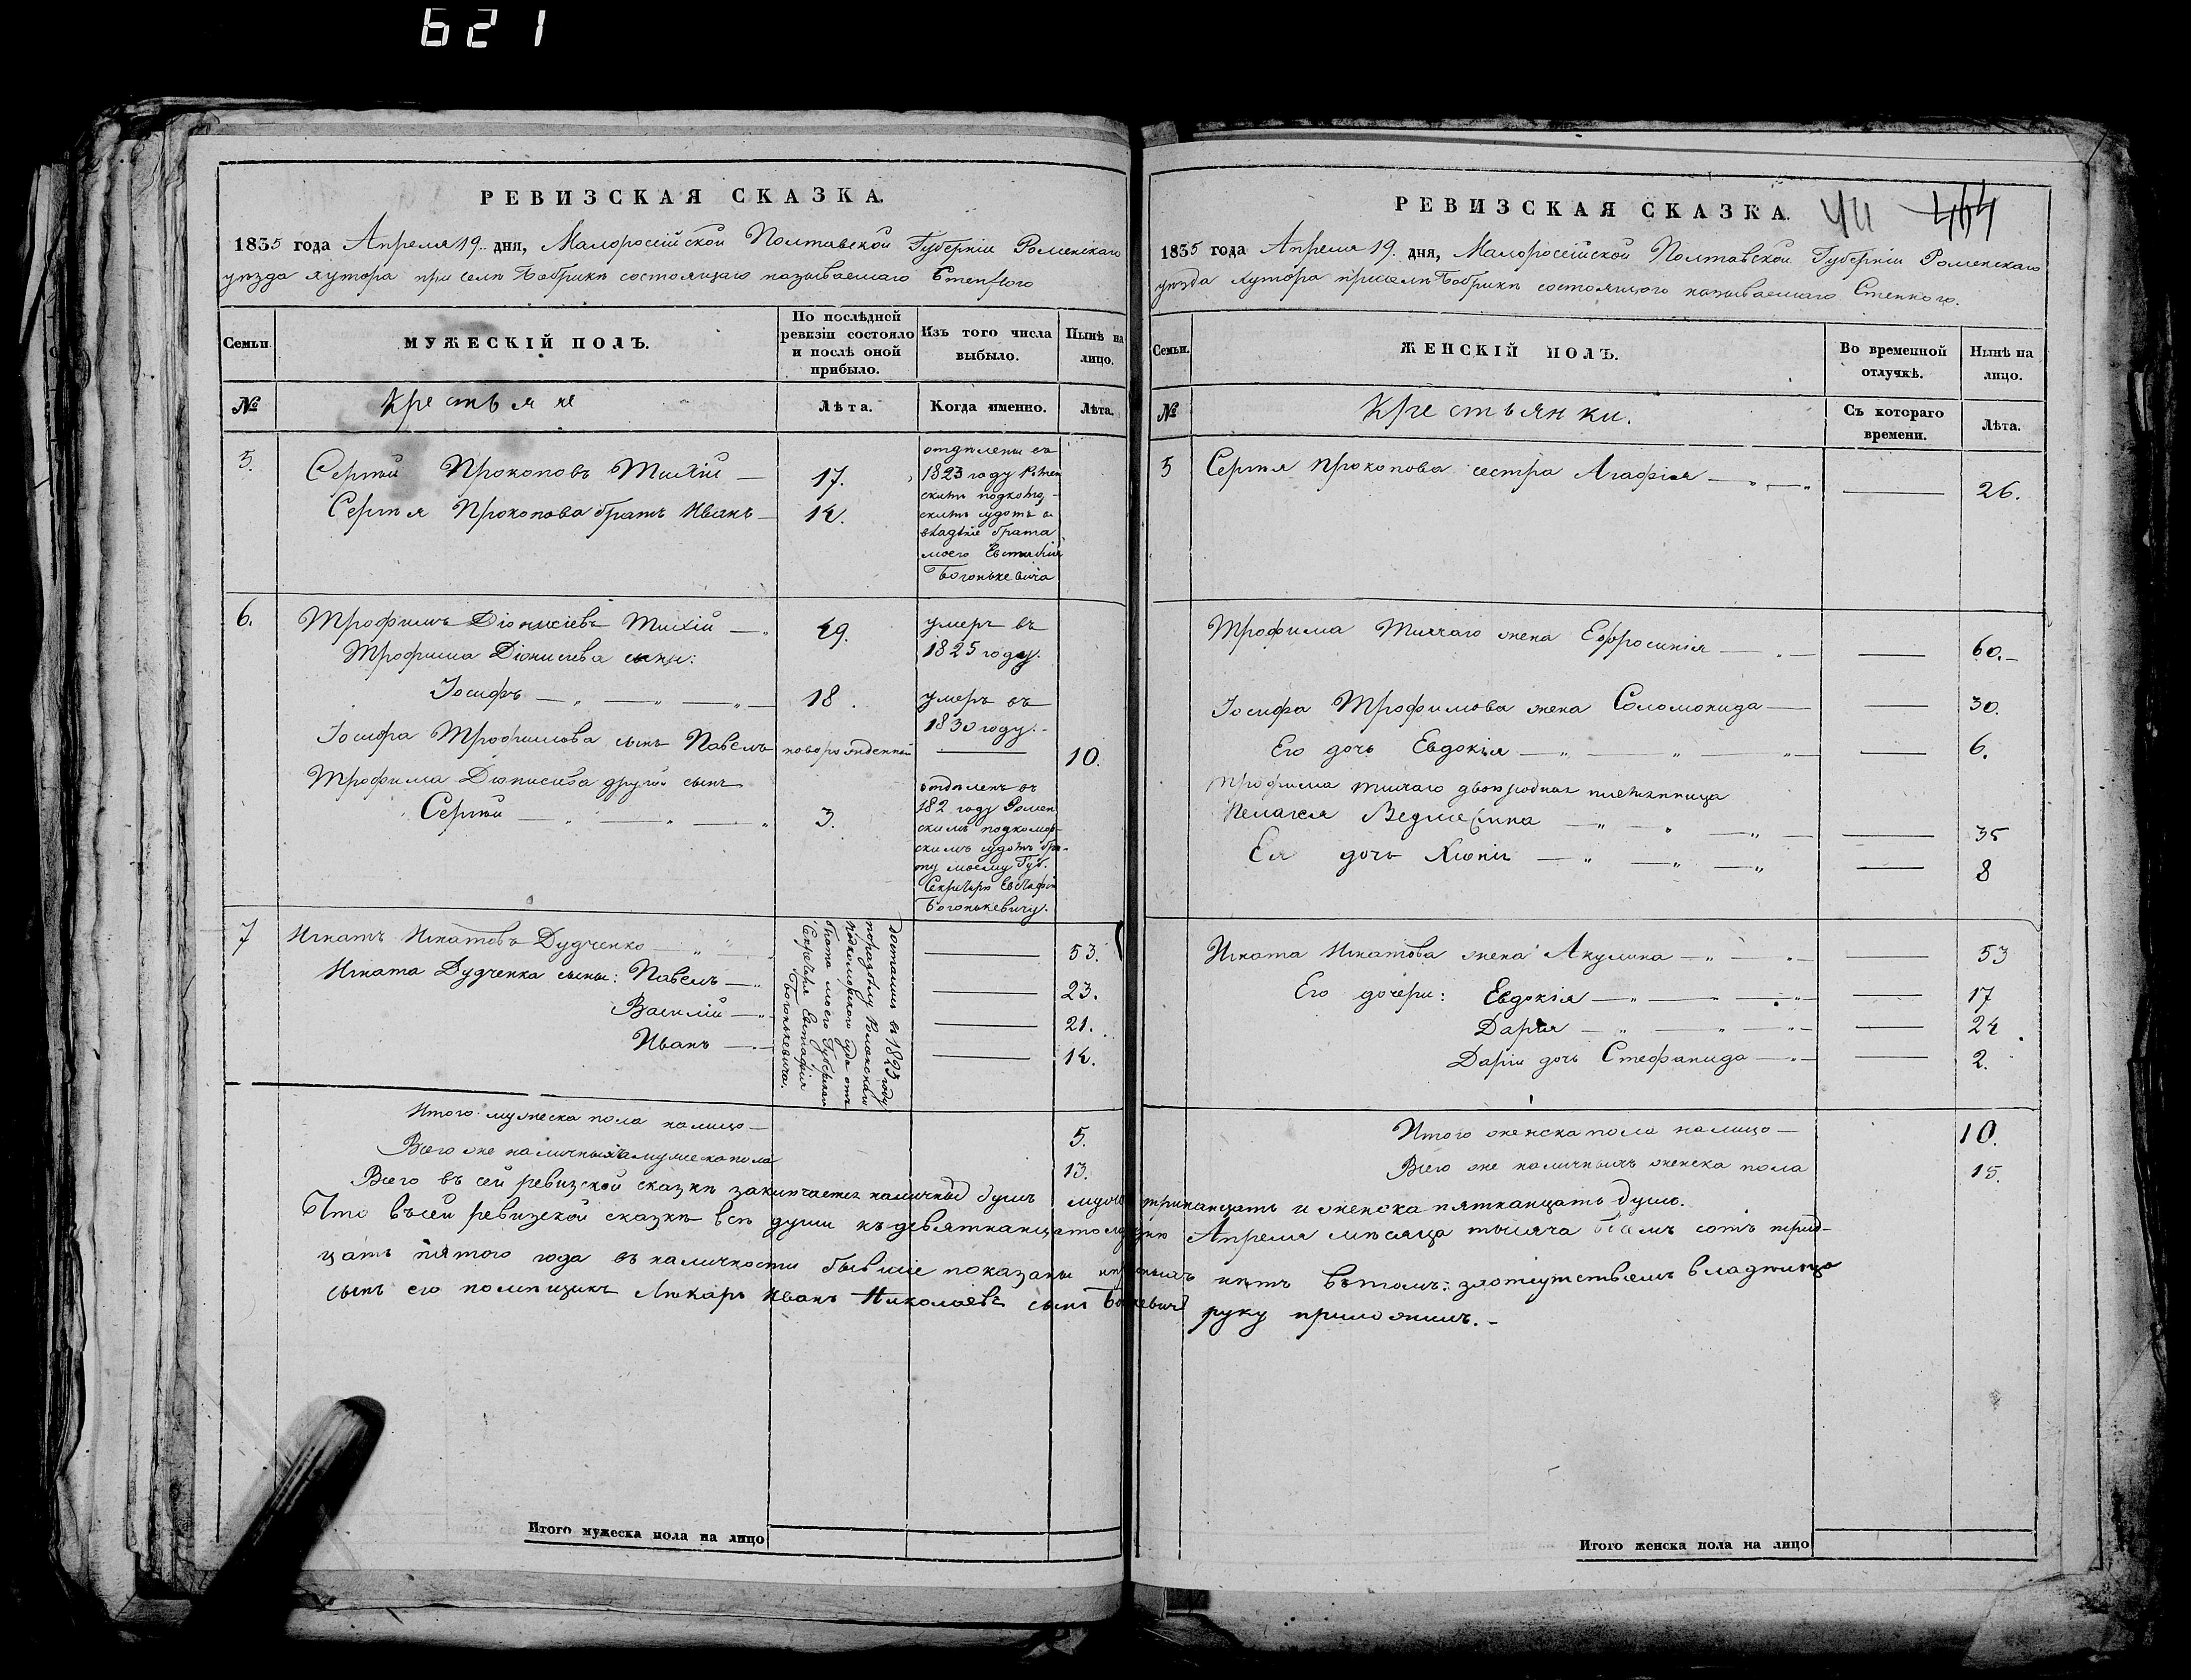 621
РЕВИЗСКАЯ СКАЗКА.
1835 года Апреля 19. дня, Малоросійской Полтавской Губерніи Роменскаго
уѣзда хутора при селѣ Бобрикѣ состоящаго называемаго
Семьи.
МУЖЕСКІЙ ПОЛЪ.
По послѣдней
ревизіи состояло
и послѣ оной
прибыло.
Изъ того числа
выбыло.
Нынѣ на
лицо.
№
Крестьяне
Лѣта.
Когда именно.
Лѣта.
5.
Сергѣй Прокоповъ Тихій — 17.
Сергѣя Прокопова братъ Иванъ — 14.
отдѣлены въ
1823 году
скимъ
скимъ судомъ в
владѣніе брата
моего Евстафія
Богонькевича
6.
Трофимъ Діонисіевъ Тихій — 49.
умеръ въ
1825 году.
Трофима Діонисіева сыны:
Іосифъ — 18.
умеръ въ
1830 году.
Іосифа Трофимова сынъ Павелъ новорожденный — 10.
Трофима Діонисіева другой сынъ
Сергѣй — 3.
отдѣленъ въ
182 году Ромен
скимъ подкомор-
скимъ судомъ бра-
ту моему Губ.
Секретарю Евстафію
Богонькевичу.
7
Игнатъ Игнатовъ Дудченко — 53.
Игната Дудченка сыны: Павелъ — 23.
Василій — 21.
Иванъ — 14.
достались в 1823 году
по раздѣлу Роменскаго
подкоморскаго суда отъ
брата моего Губернск
Секретаря Евстафія
Богонькевича.
Итого мужеска пола налицо — 5.
Всего же наличныхъ мужеска пола 13.
РЕВИЗСКАЯ СКАЗКА.
444
1835 года Апреля 19. дня, Малоросійской Полтавской Губерніи Роменскаго
уѣзда хутора при селѣ Бобрикѣ состоящого называемаго Стенкого.
Семьи.
ЖЕНСКІЙ ПОЛЪ.
Во временной
отлучкѣ.
Нынѣ на
лицо.
№
Крестьянки.
Съ котораго
времени.
Лѣта.
5 Сергѣя Прокопова сестра Агафія — 26.
Трофима Тихаго жена Ефросинія — 60.
Іосифа Трофимова жена Соломонида — 30.
Его дочь Евдокія — 6.
Трофима Тихаго двоюродная племянница
Пелагея — 35
Ея дочь — 8
Игната Игнатова жена Акулина — 53
Его дочери: Евдокія — 17
Дарія — 24
Даріи дочь Стефанида — 2.
Итого женска пола налицо — 10.
Всего же наличныхъ женска пола 15.
Всего въ сей ревизской сказкѣ заключается наличных душъ мужеска тринанцать и женска пятнанцать душъ.
Что въ сей ревизской сказкѣ всѣ души къ девятнанцатому дню Апреля мѣсяца тысяча восемъ сотъ трид-
цать пятого года въ наличности бывшіе показаны и нѣтъ въ томъ: за отсутствіемъ владѣльца
сынъ его помѣщикъ Лѣкарь Иванъ Николаевъ сынъ руку приложилъ.
Итого мужеска пола на лицо
Итого женска пола на лицо